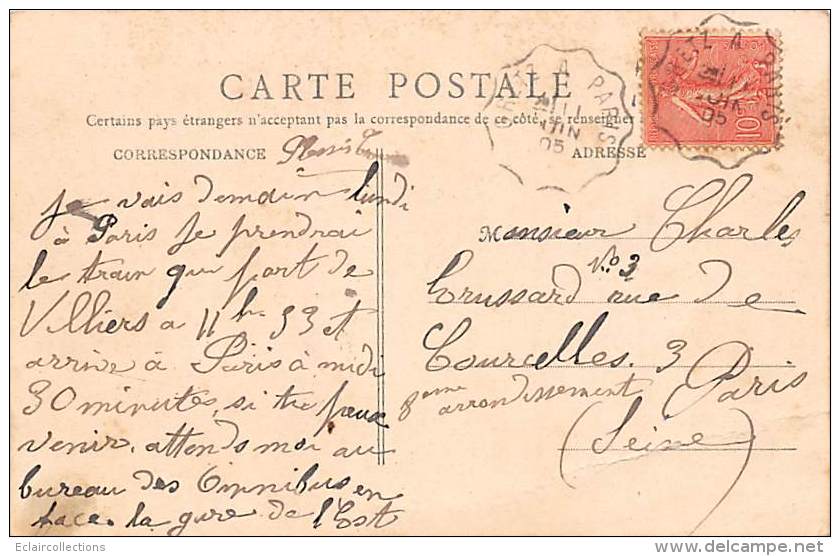 CARTE POSTALE
Certains pays étrangers n'acceptant pas la correspondance de ce côté, se renseigner
CORRESPONDANCE
ADRESSE
Je vais demain lundi
à Paris Je prendrai
le train qui part de
Villiers a 11 h 33 et
arrive à Paris à midi
30 minutes, si tu peux
venir, attends moi au
bureau des Omnibus en
face la gare de l'Est
Monsieur Charles
No 3
Trussard rue de
Courcelles. 3
8eme arrondissement Paris
(Seine)
A PARIS
11
JUIN
05
A
PARIS
05
10
Eclaircollections
www.delcampe.net